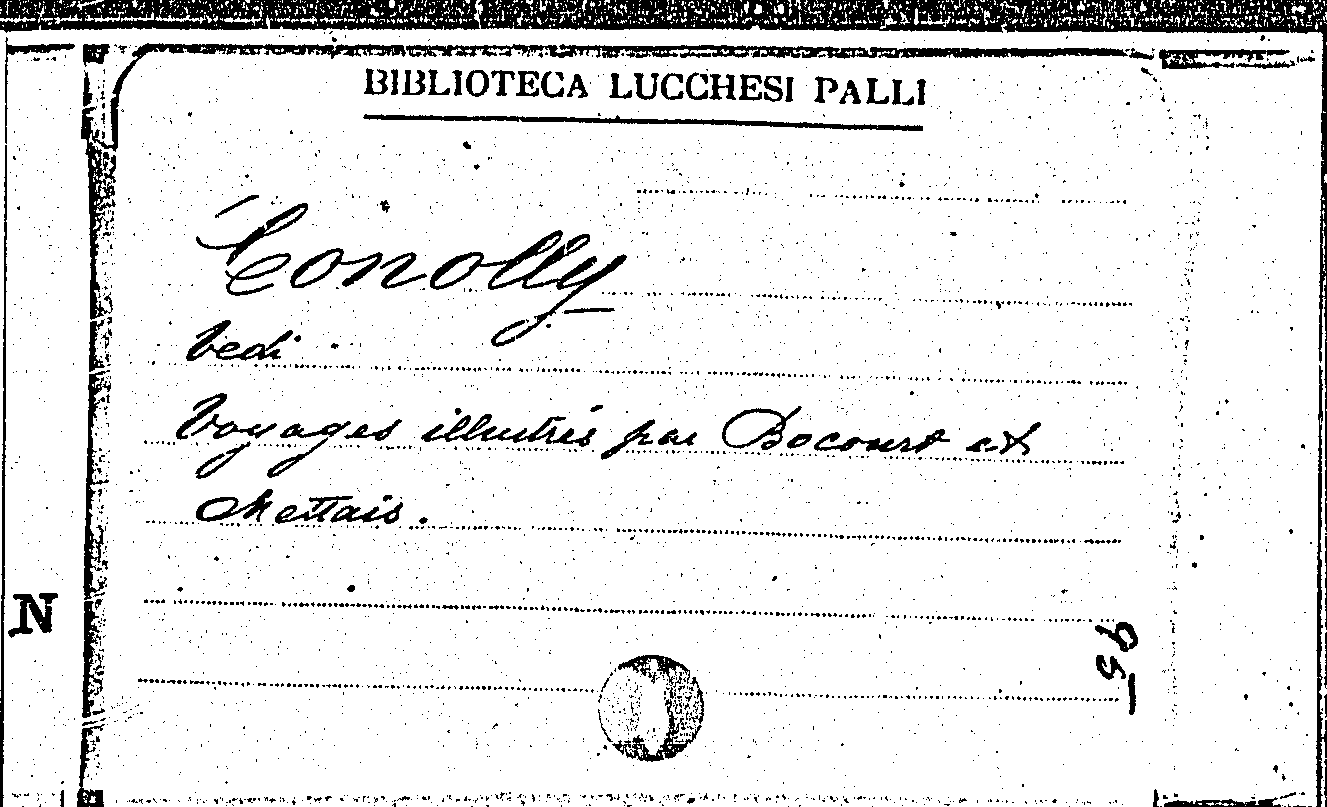 BIBLIOTECA LUCCHESI PALLI
Conolly
Vedi
Voyages illustrés par Bocourt et
Mettais.
N
95